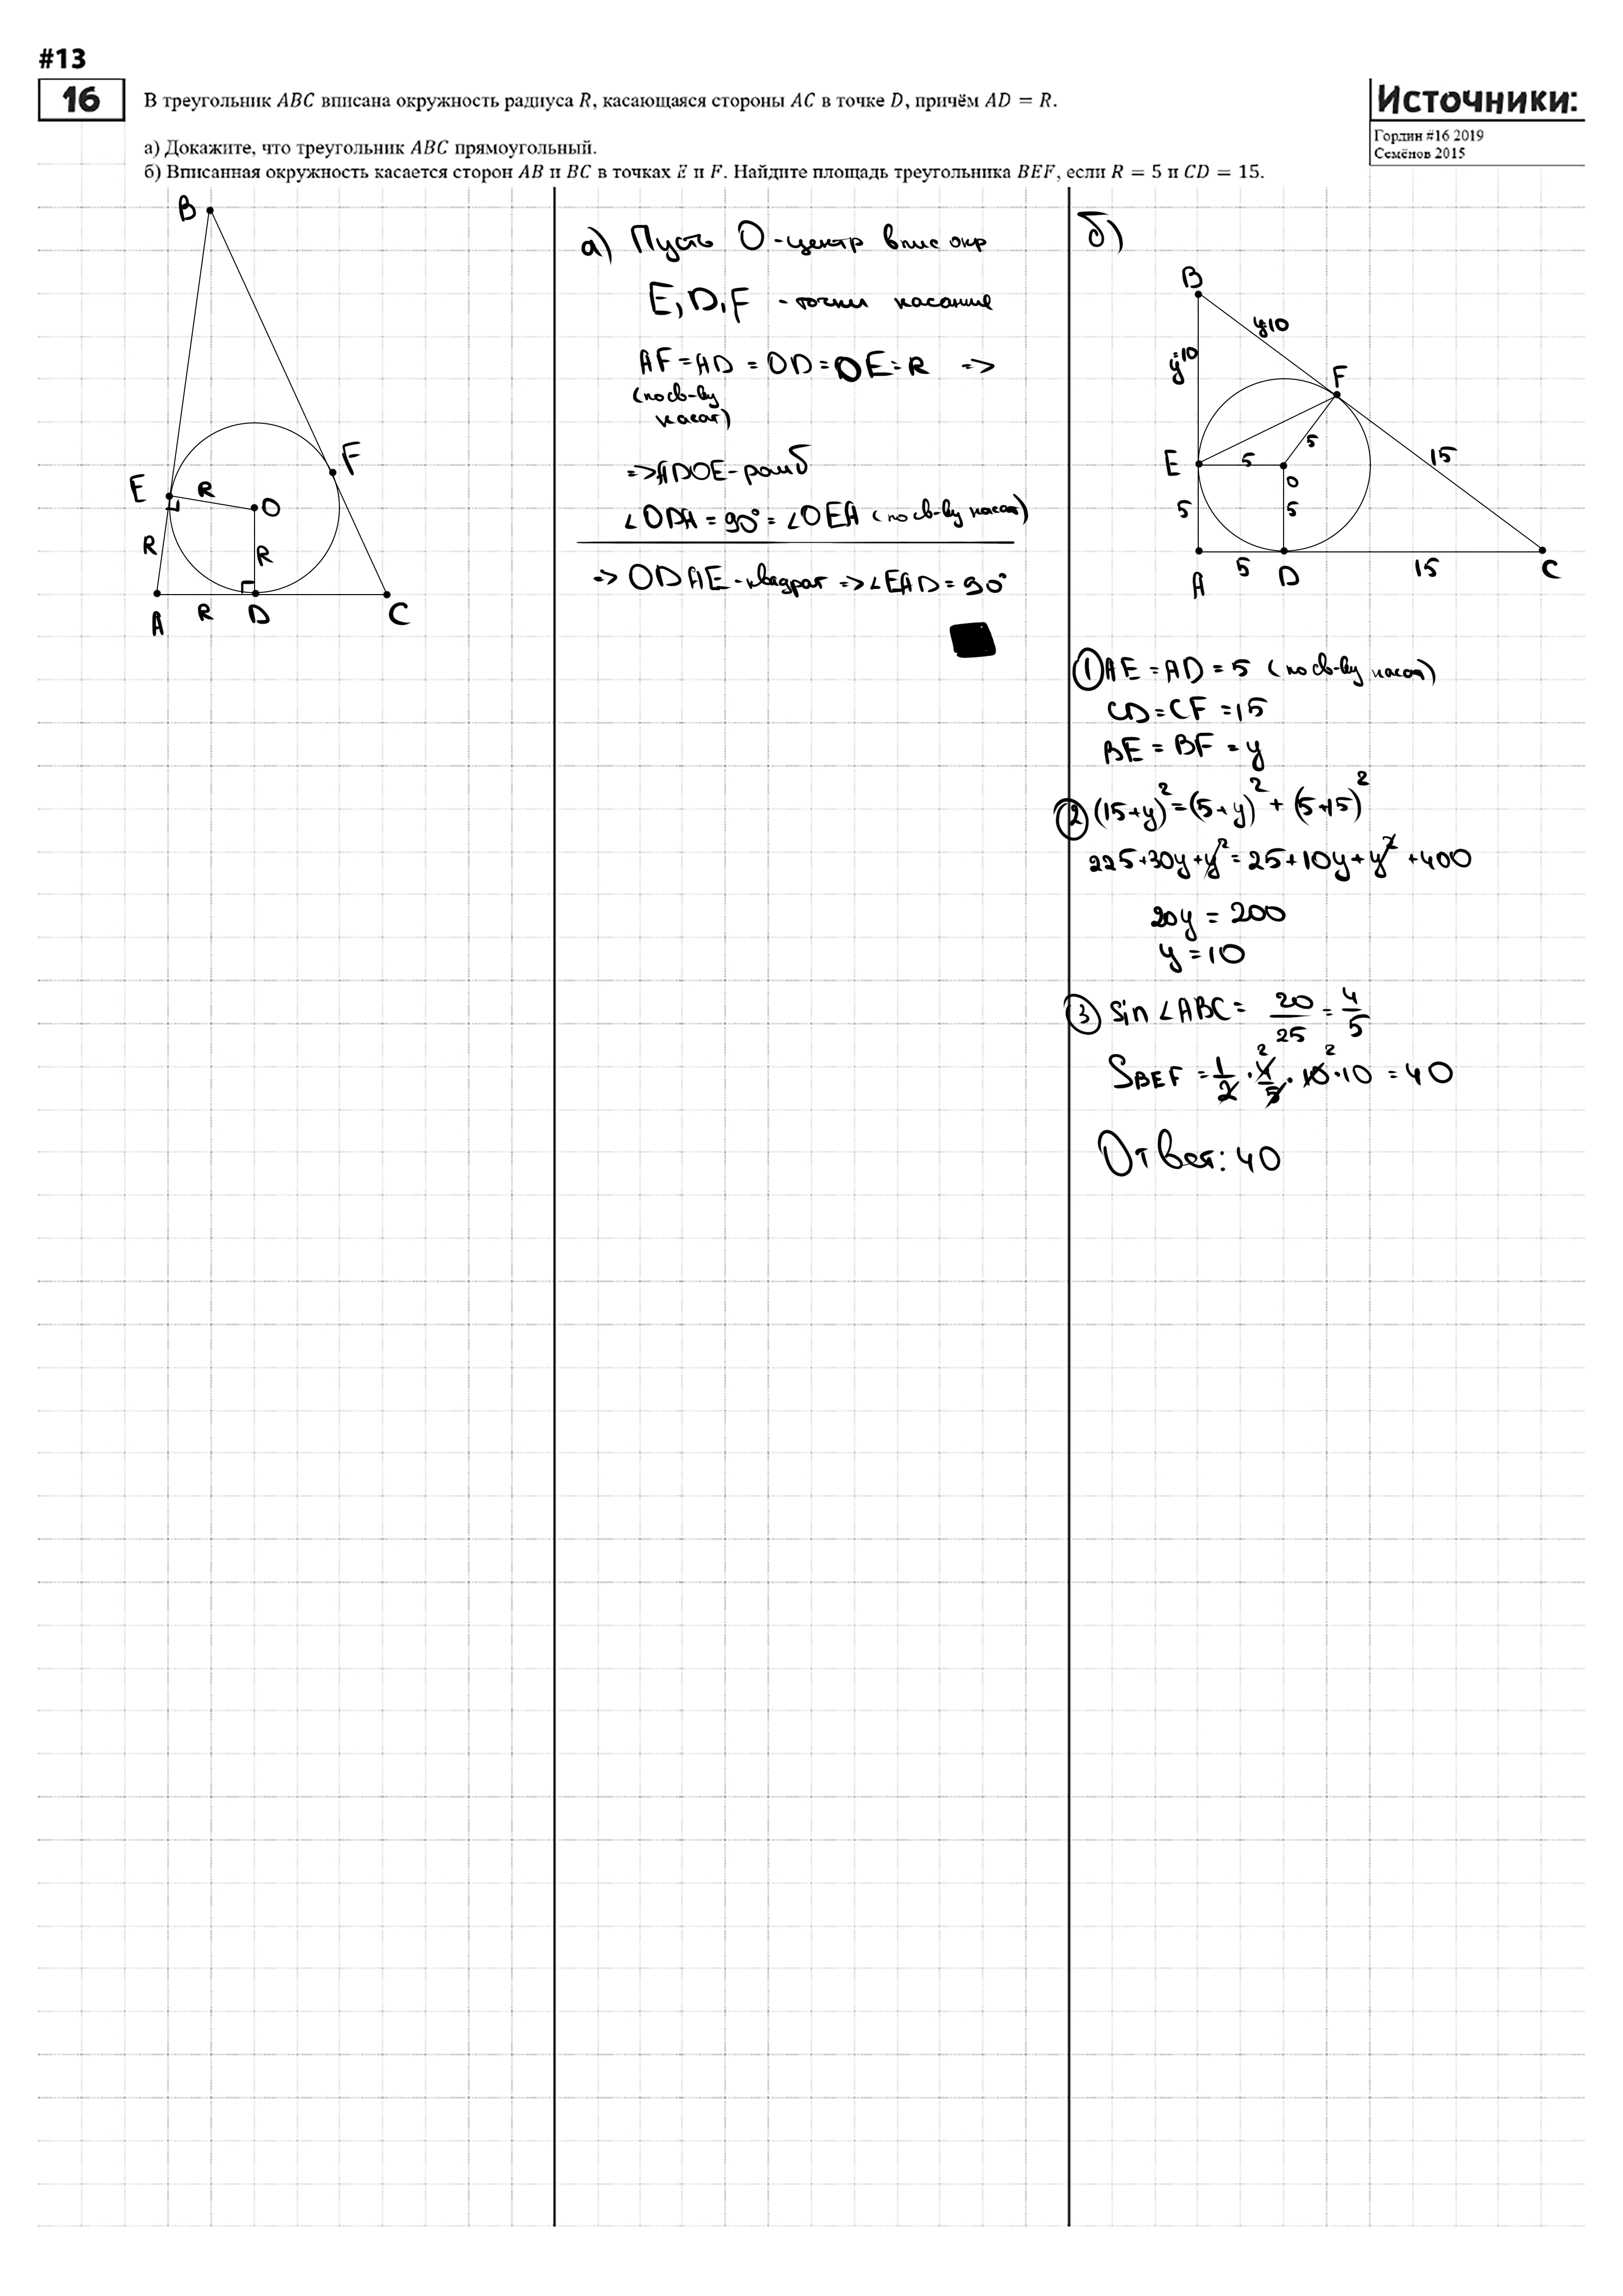 #13
16
В треугольник ABC вписана окружность радиуса R, касающаяся стороны AC в точке D, причём AD = R.
Источники:
Гордин #16 2019
Семёнов 2015
а) Докажите, что треугольник ABC прямоугольный.
б) Вписанная окружность касается сторон AB и BC в точках E и F. Найдите площадь треугольника BEF, если R = 5 и CD = 15.
B
E
R
O
F
R
R
A
R
D
C
а) Пусть O - центр впис окр
E, D, F - точки касания
AF = AD = OD = OE = R =>
(по св-ву
касат)
=> ADOE - ромб
∠ODA = 90° = ∠OEA (по св-ву касат)
=> ODAE - квадрат => ∠EAD = 90°
б)
B
y=10
y=10
F
E
5
5
O
15
5
5
A
5
D
15
C
① AE = AD = 5 (по св-ву касат)
CD = CF = 15
BE = BF = y
② (15+y)² = (5+y)² + (5+15)²
225+30y+y² = 25+10y+y²+400
20y = 200
y = 10
③ Sin ∠ABC = 20/25 = 4/5
S BEF = 1/2 · 4/5 · 10 · 10 = 40
Ответ: 40